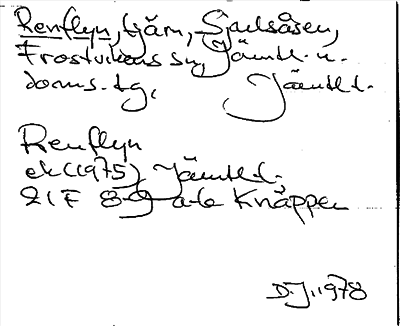 Renflyn, tjärn, Sjulsåsen,
Frostvikens sn, Jämtl. n.
doms. tg, Jämtl. l.
Renflyn
ek (1975), Jämtl. l.
21 F 8-9 a-b Knäppen
D.J. 1978